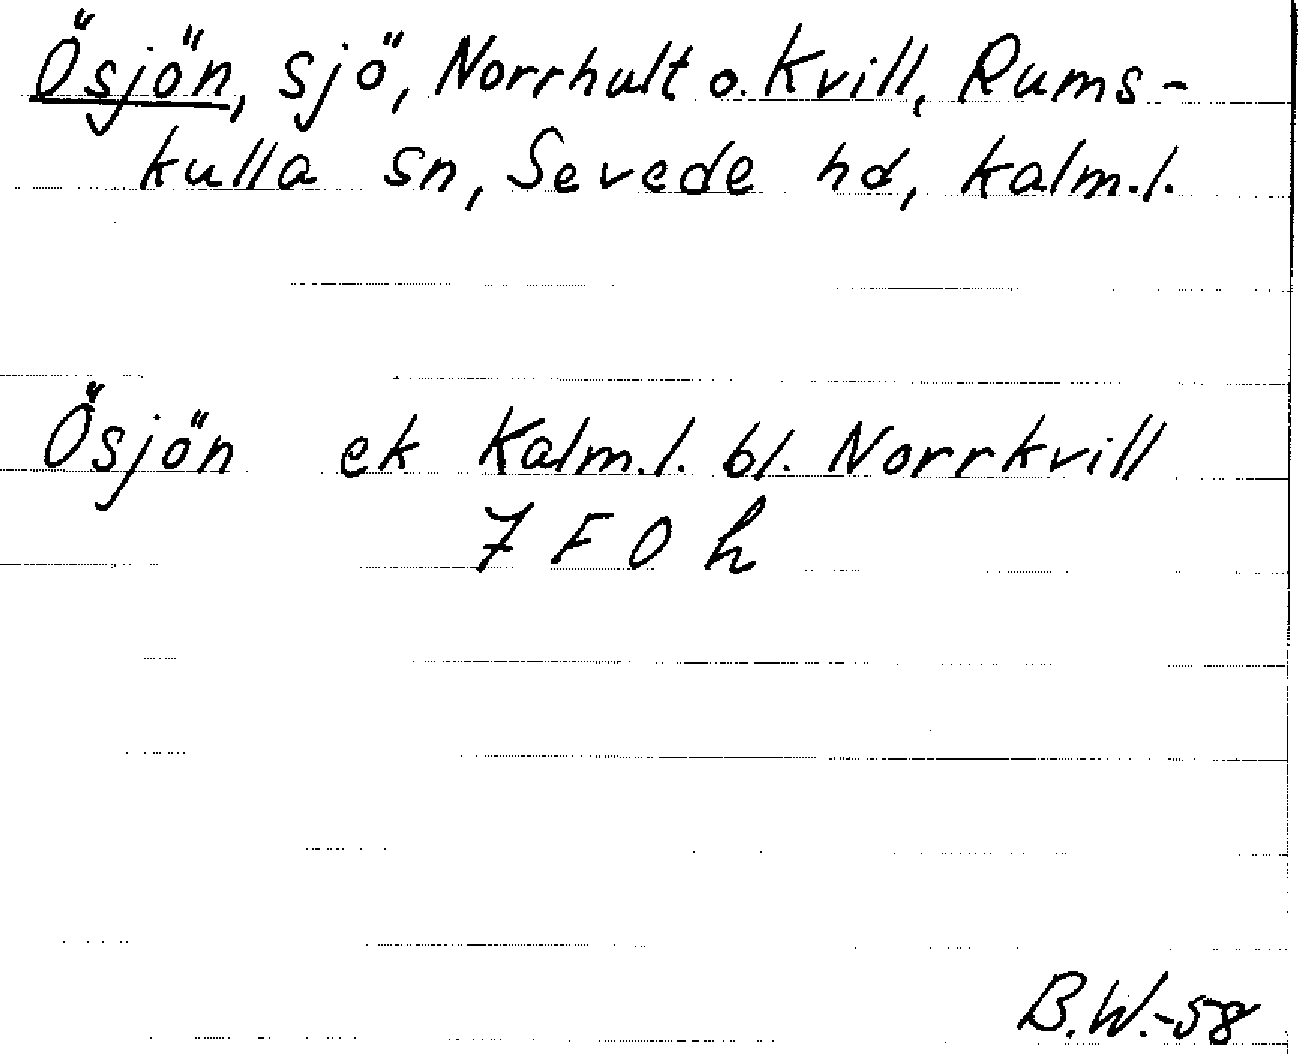 Ösjön, sjö, Norrhult o. Kvill, Rums-
kulla sn, Sevede hd, Kalm.l.
Ösjön ek Kalm.l. bl. Norrkvill
7 F 0 h
B.W.-58